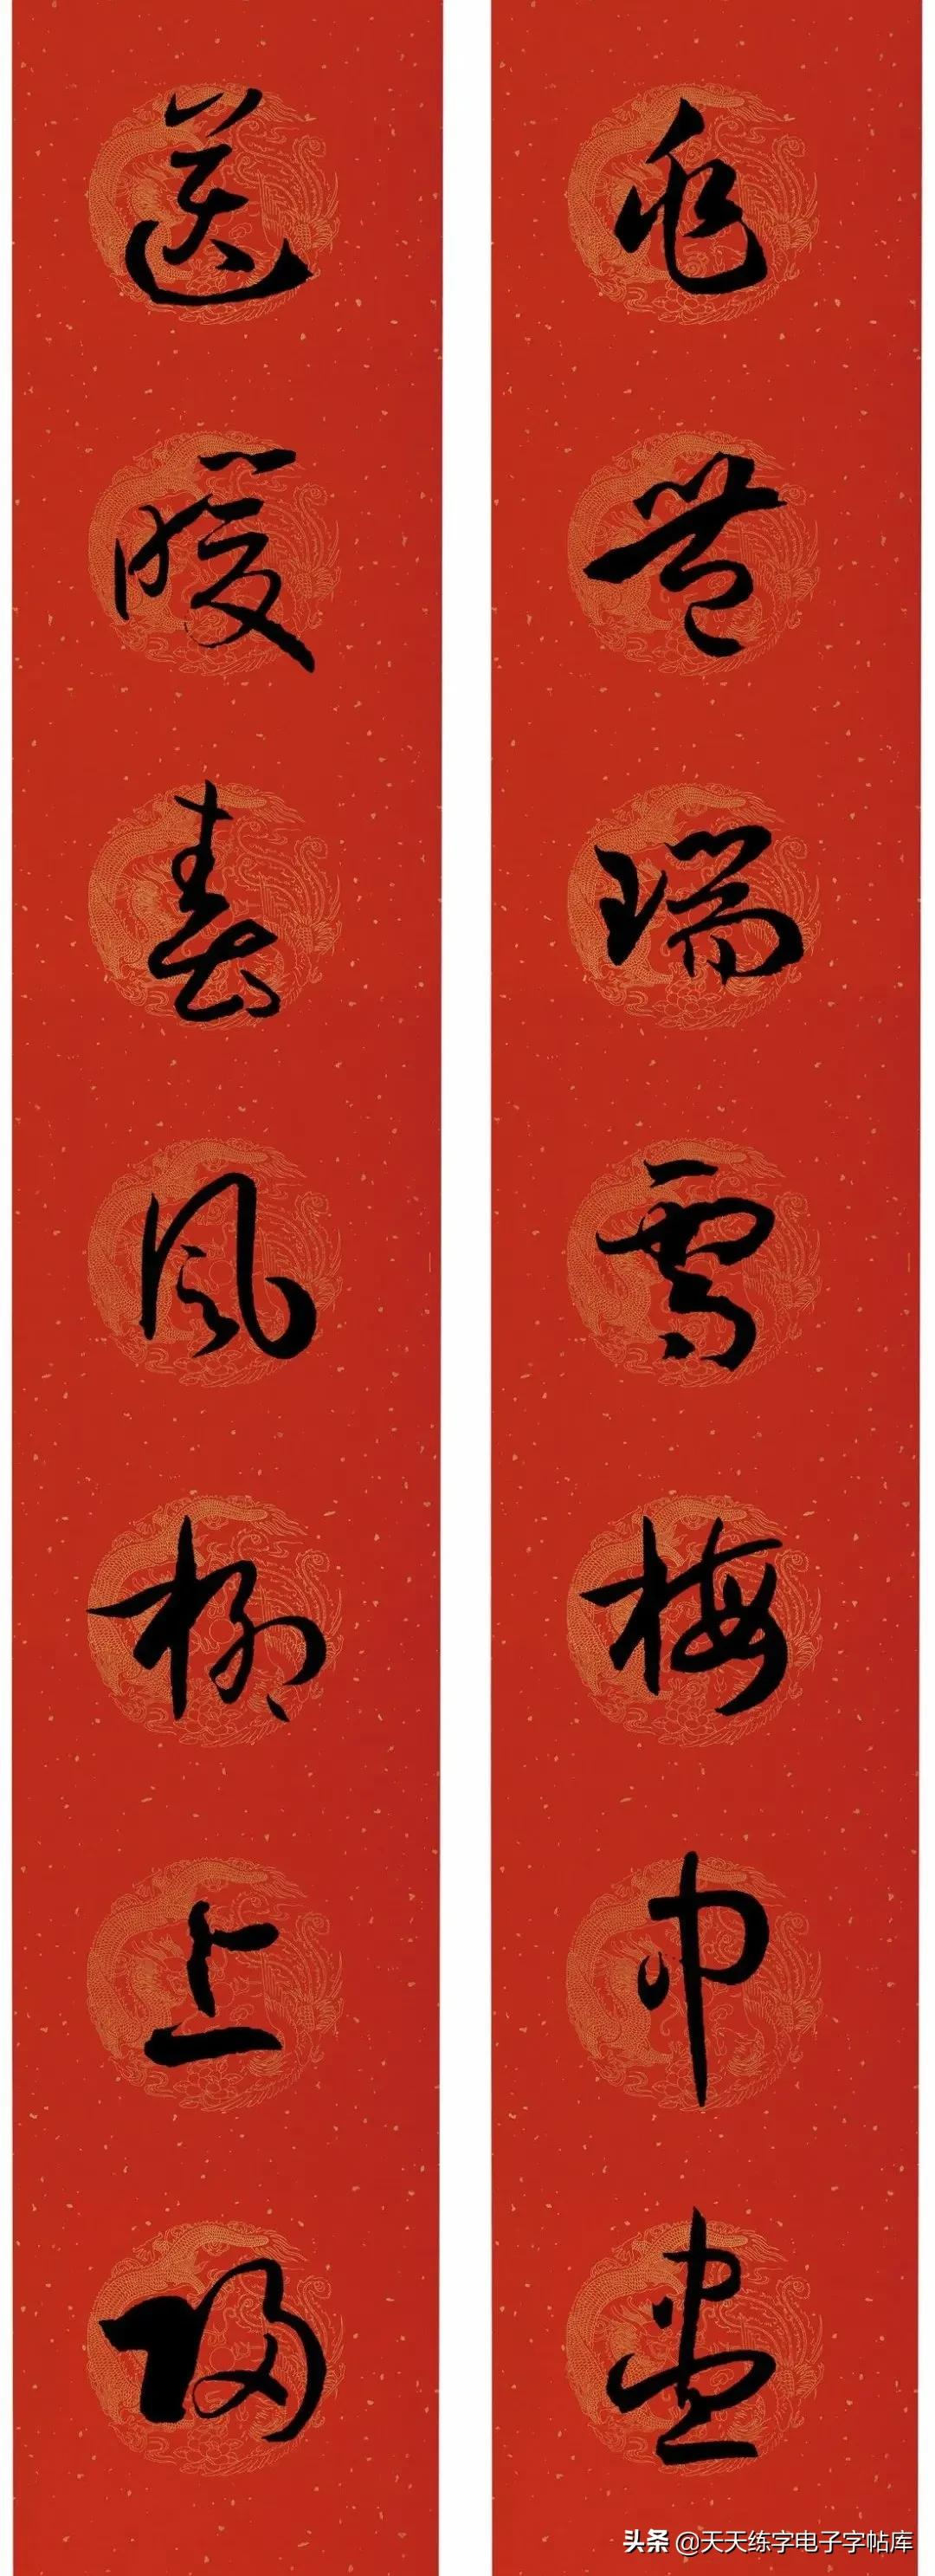 兆豐瑞雪梅中盡
送暖春風柳上歸
头条 @天天练字电子字帖库